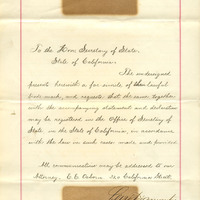 To the Hon. Secretary of State
State of California.
The undersigned
present herewith a fac simile of their lawful
trade mark, and requests that the same, together
with the accompanying statement and declaration
may be registered in the Office of Secretary of
State, in the State of California, in accordance
with the law in such cases made and provided.
All communications may be addressed to our
Attorney, C. C. California Street